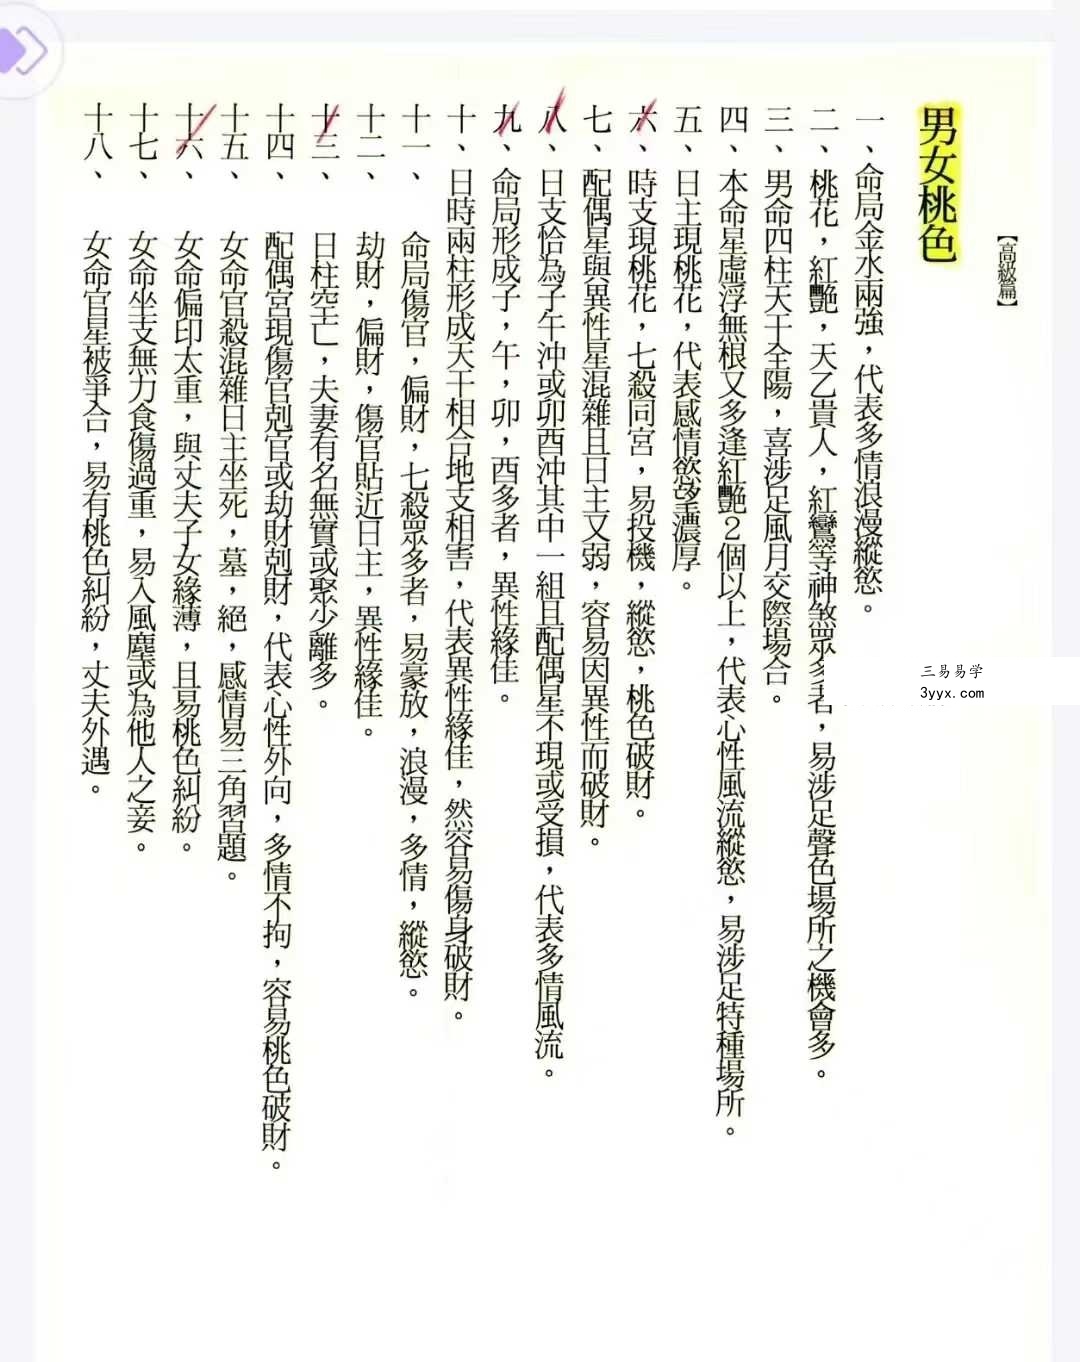 【高級篇】
男女桃色
一、命局金水兩強，代表多情浪漫縱慾。
二、桃花，紅艷，天乙貴人，紅鸞等神煞眾多者，易涉足聲色場所之機會多。
三、男命四柱天干全陽，喜涉足風月交際場合。
四、本命星虛浮無根又多逢紅艷2個以上，代表心性風流縱慾，易涉足特種場所。
五、日主現桃花，代表感情慾望濃厚。
六、時支現桃花，七殺同宮，易投機，縱慾，桃色破財。
七、配偶星與異性星混雜且日主又弱，容易因異性而破財。
八、日支恰為子午沖或卯酉沖其中一組且配偶星不現或受損，代表多情風流。
九、命局形成子，午，卯，酉多者，異性緣佳。
十、日時兩柱形成天干相合地支相害，代表異性緣佳，然容易傷身破財。
十一、命局傷官，偏財，七殺眾多者，易豪放，浪漫，多情，縱慾。
十二、劫財，偏財，傷官貼近日主，異性緣佳。
十三、日柱空亡，夫妻有名無實或聚少離多。
十四、配偶宮現傷官剋官或劫財剋財，代表心性外向，多情不拘，容易桃色破財。
十五、女命官殺混雜日主坐死，墓，絕，感情易三角習題。
十六、女命偏印太重，與丈夫子女緣薄，且易桃色糾紛。
十七、女命坐支無力食傷過重，易入風塵或為他人之妾。
十八、女命官星被爭合，易有桃色糾紛，丈夫外遇。
三易易学
3yyx.com